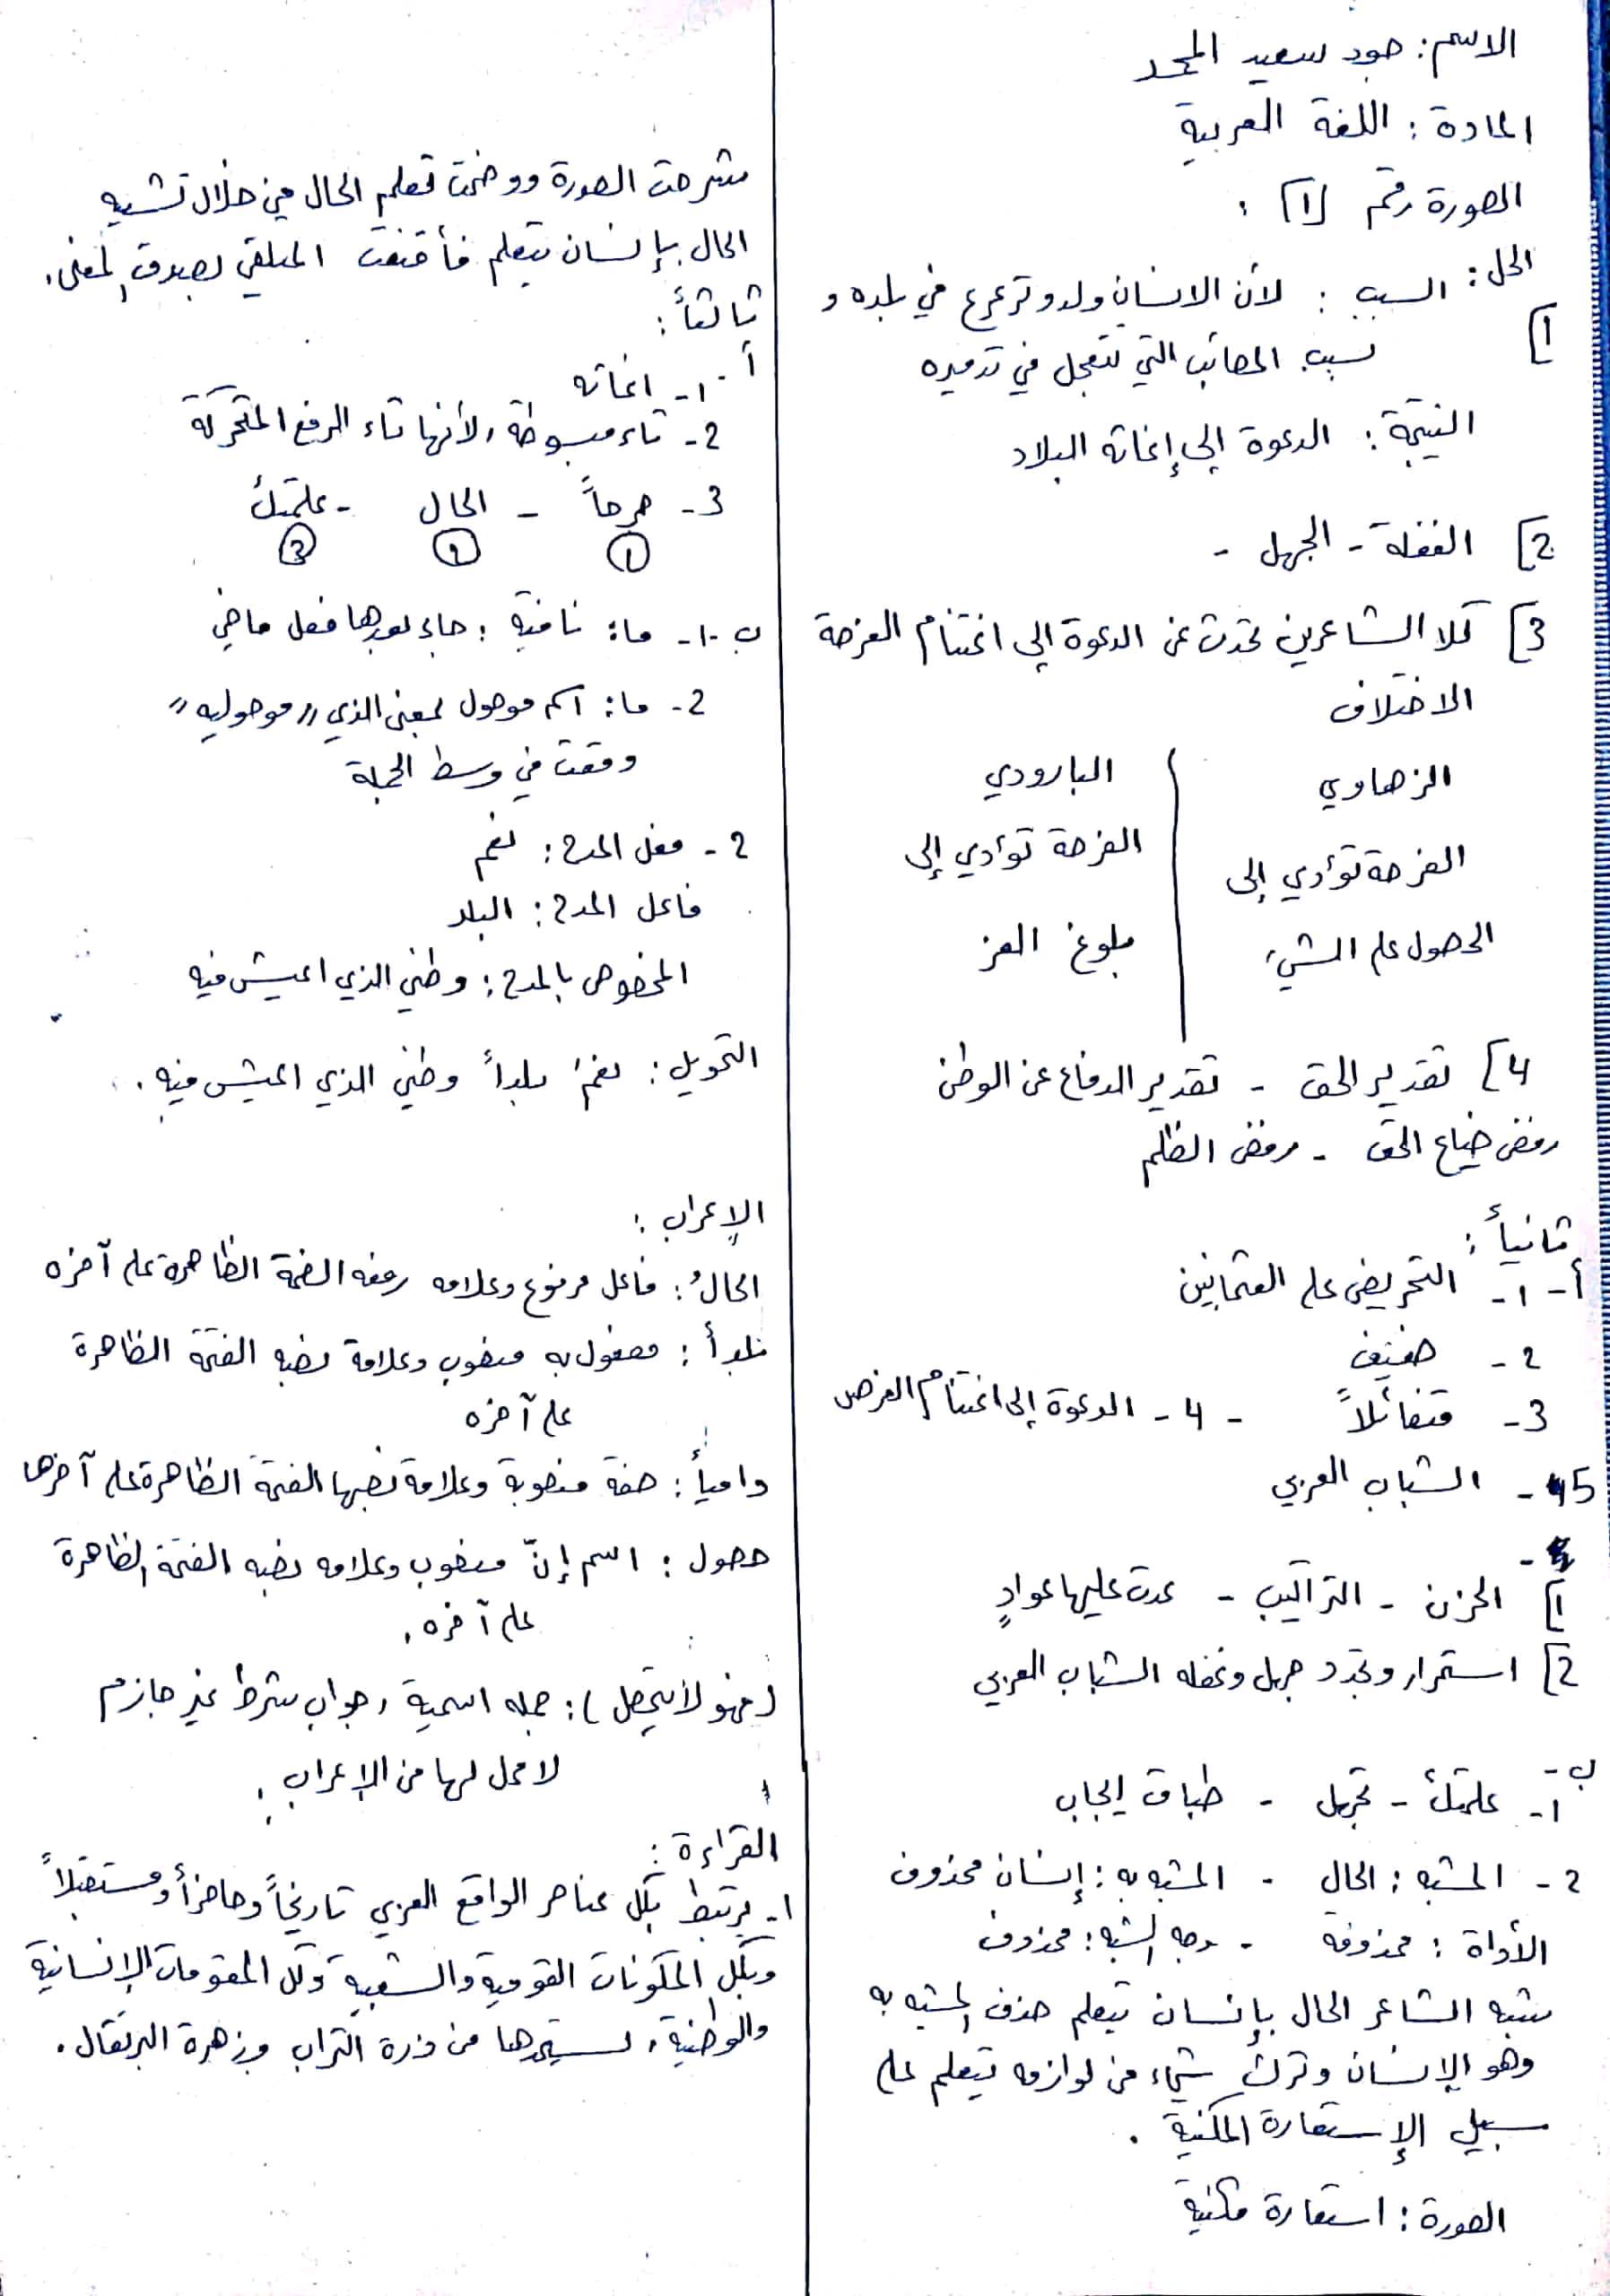 الاسم: جود سعيد المحمد
المادة: اللغة العربية
الصورة رقم [1]:
الحل: السبب: لأن الانسان ولد وترعرع في بلده و
1] بسبب المصائب التي تتعجل في تدميره
النتيجة: الدعوة إلى إغاثه البلاد
2] الغفلة - الجهل -
3] كلا الشاعرين تحدث عن الدعوة إلى اغتنام الفرصة
الاختلاف
الزهاوي | البارودي
الفرصة تؤادي إلى | الفرصة تؤادي إلى
الحصول على الشيء | بلوغ العز
4] تقدير الحق - تقدير الدفاع عن الوطن
رفض ضياع الحق - رفض الظلم
ثانياً:
أ- 1- التحريض على العثمانين
2- ضعيف
3- متفائلاً - 4- الدعوة إلى اغتنام الفرص
5- الشباب العربي
1] الحزن - التراكيب - عدت عليها عوادٍ
2] استمرار وتجدد جهل وغفله الشباب العربي
ب-
1- علمتك - تجهل - طباق إيجاب
2- المشبه: الحال - المشبه به: إنسان محذوف
الأداة: محذوفه - وجه الشبه: محذوف
شبه الشاعر الحال بإنسان يتعلم حذف المشبه به
وهو الإنسان وترك شيء من لوازمه يتعلم على
سبيل الإستعارة المكنية.
الصورة: استعارة مكنية
شرحت الصورة ووضحت تعلم الحال من خلال تشبيه
الحال بإنسان يتعلم فأقنعت المتلقي بصدق المعنى.
ثالثاً:
أ- 1- اغاثه
2- تاء مبسوطة، لأنها تاء الرفع المتحركة
3- صرحاً - الحال - علمتك
(1) (2) (3)
ب-1- ما: نافية: جاء بعدها فعل ماضي
2- ما: اسم موصول بمعنى الذي "موصوليه"
وقعت في وسط الجملة
2- فعل المدح: نعم
فاعل المدح: البلد
المخصوص بالمدح: وطني الذي اعيش فيه
التحويل: نعمَ بلداً وطني الذي اعيش فيه.
الإعراب:
الحالُ: فاعل مرفوع وعلامه رفعه الضمة الظاهرة على آخره
بلداً: مفعول به منصوب وعلامة نصبه الفتحة الظاهرة
على آخره
دامياً: صفة منصوبة وعلامة نصبها الفتحة الظاهرة على آخرها
حصول: اسم إنّ منصوب وعلامه نصبه الفتحة الظاهرة
على آخره.
(فهو لا يتحصل): جمله اسمية، جواب شرط غير جازم
لا محل لها من الإعراب.
القراءة:
1- يرتبط بكل عناصر الواقع العربي تاريخاً وحاضراً ومستقبلاً
وبكل المكونات القوميه والشعبيه وكل المقومات الإنسانية
والوطنية، يستمدها من ذرة التراب وزهرة البرتقال.